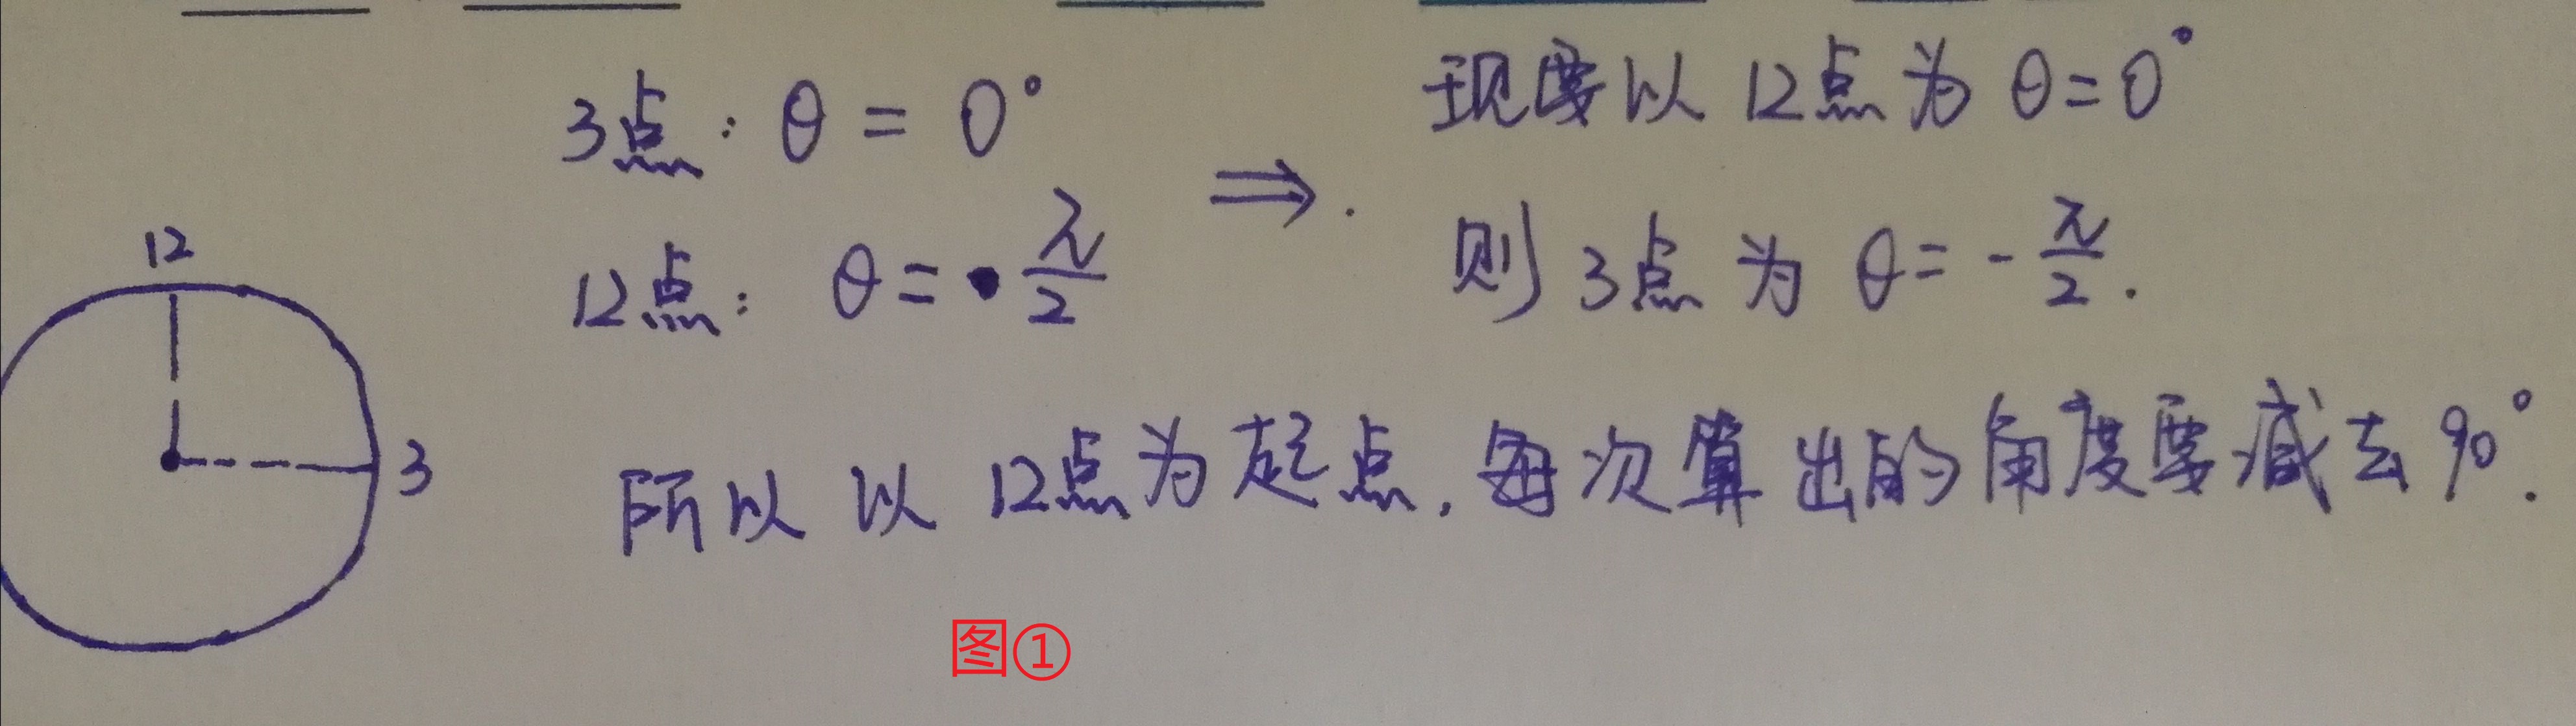 3点：θ = 0°
12点：θ = π/2
⇒.
现要以 12点为 θ=0°
则 3点 为 θ= - π/2.
12
3
所以 以 12点为起点，每次算出的角度要减去90°.
图①